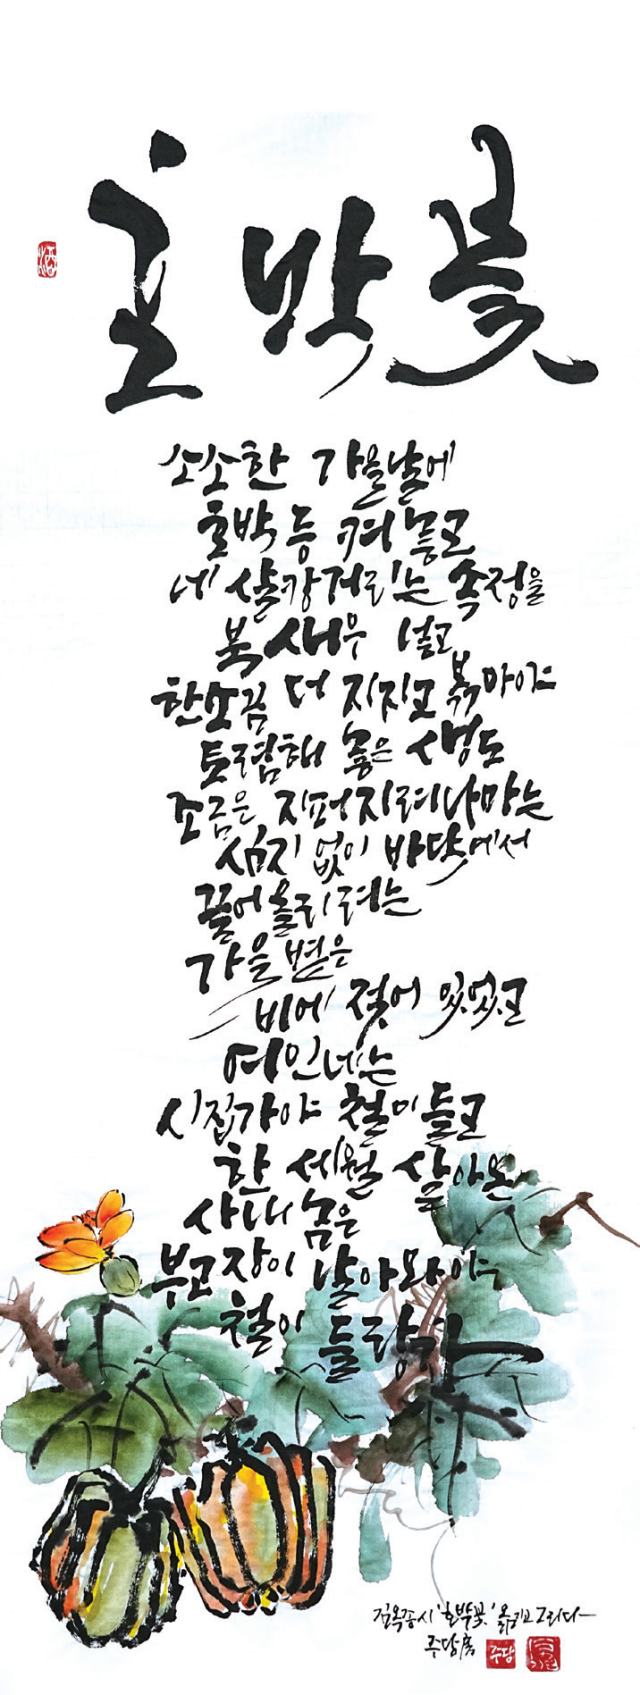 호박꽃
소소한 가을날에
호박등 켜 놓고
네 살캉거리는 속정을
복새우 넣고
한소끔 더 지지고 볶아야
토렴해 놓은 생도
조금은 지펴지려나마는
심지 없이 바닥에서
끌어올리려는
가을볕은
비에 젖어 있었고
여인네는
시집가야 철이 들고
한 세월 살아온
사내 놈은
부고장이 날아와야
철이 들랑가
김옥종 시 '호박꽃' 옮기고 그리다
주당
주당